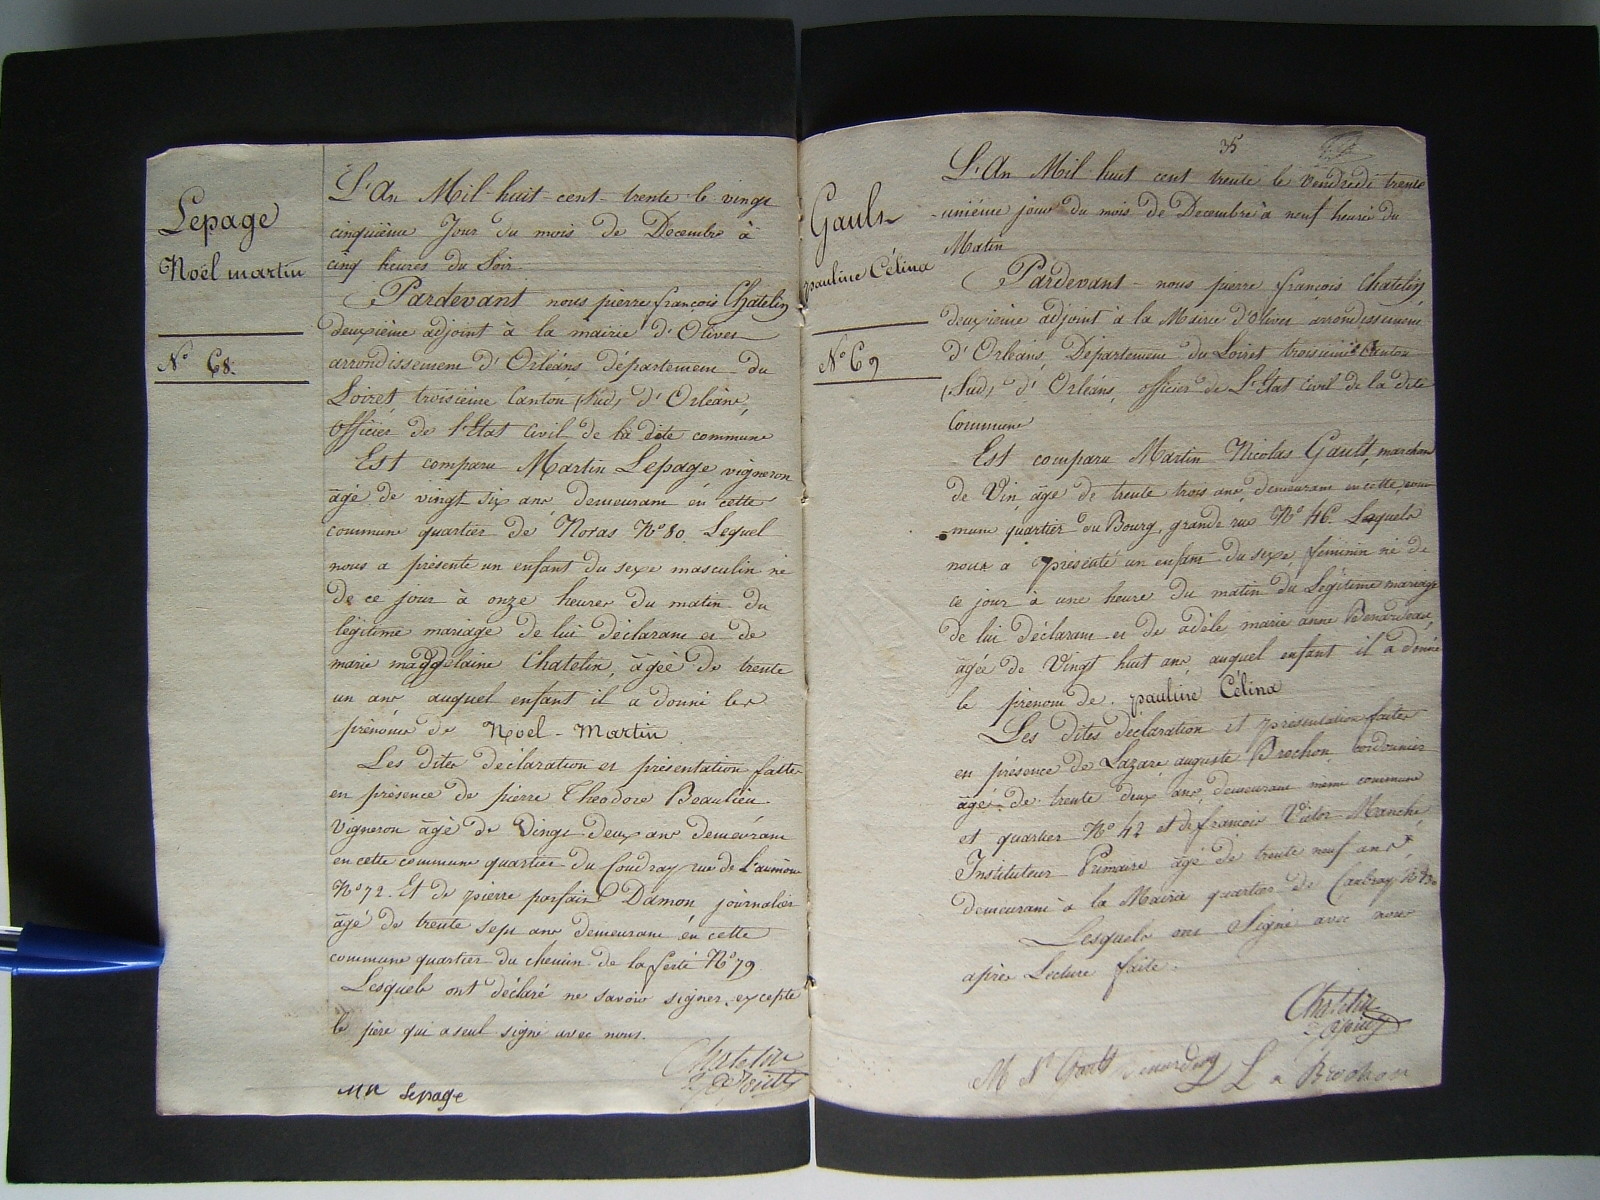 Lepage
Noël martin
N° 68.
L'An Mil-huit-cent-trente le vingt
cinquième Jour du mois de Decembre à
cinq heures du Soir.
Pardevant nous pierre françois Châtelin
deuxième adjoint à la mairie d'Olivet
arrondissement d'Orléans département du
Loiret, troisième Canton (Sud) d'Orléans,
officier de l'Etat Civil de la dite commune
Est comparu Martin Lepage vigneron
âgé de vingt six ans demeurant en cette
commune quartier de Noras N° 80. Lequel
nous a présenté un enfant du sexe masculin né
de ce jour à onze heures du matin du
légitime mariage de lui déclarant et de
marie magdelaine Chatelin, âgée de trente
un ans auquel enfant il a donné les
prénoms de Noël-Martin
Les dites déclaration et présentation faites
en présence de pierre Théodore Beaulieu
Vigneron âgé de Vingt deux ans demeurant
en cette commune quartier du Coudray rue de L'aumône
N° 72. Et de pierre parfait Damon journalier
âgé de trente sept ans demeurant en cette
commune quartier du chemin de la ferté N° 79
Lesquels ont déclaré ne savoir signer, excepté
le père qui a seul signé avec nous.
Chatelin
adjoint
Mn Lepage
35
Gault
pauline Célina
N° 69
L'An Mil huit cent trente le Vendredi trente
unième jour du mois de Decembre à neuf heures du
Matin
Pardevant - nous pierre françois Chatelin
deuxième adjoint à la Mairie d'Olivet arrondissement
d'Orléans, Département du Loiret troisième Canton
(Sud) d'Orléans, officier de L'Etat Civil de la dite
Commune
Est comparu Martin Nicolas Gault, marchand
de Vin âgé de trente trois ans, demeurant en cette com
mune quartier du Bourg, grande rue N° 46. Lesquels
nous a présenté un enfant du sexe féminin né de
ce jour à une heure du matin du Légitime mariage
de lui déclarant et de adèle marie anne Benardeau,
âgée de Vingt huit ans auquel enfant il a donné
le prenom de pauline Célina
Les dites déclaration et présentation faites
en présence de Lazare auguste Brochon cordonnier
âgé de trente deux ans, demeurant même commune
et quartier N° 42 et de francois Victor Manche
Instituteur Primaire âgé de trente neuf ans,
demeurant à la Mairie quartier de
Lesquels ont Signé avec nous
après Lecture faite.
Chatelin
adjoint
M N Gault L a Brochon